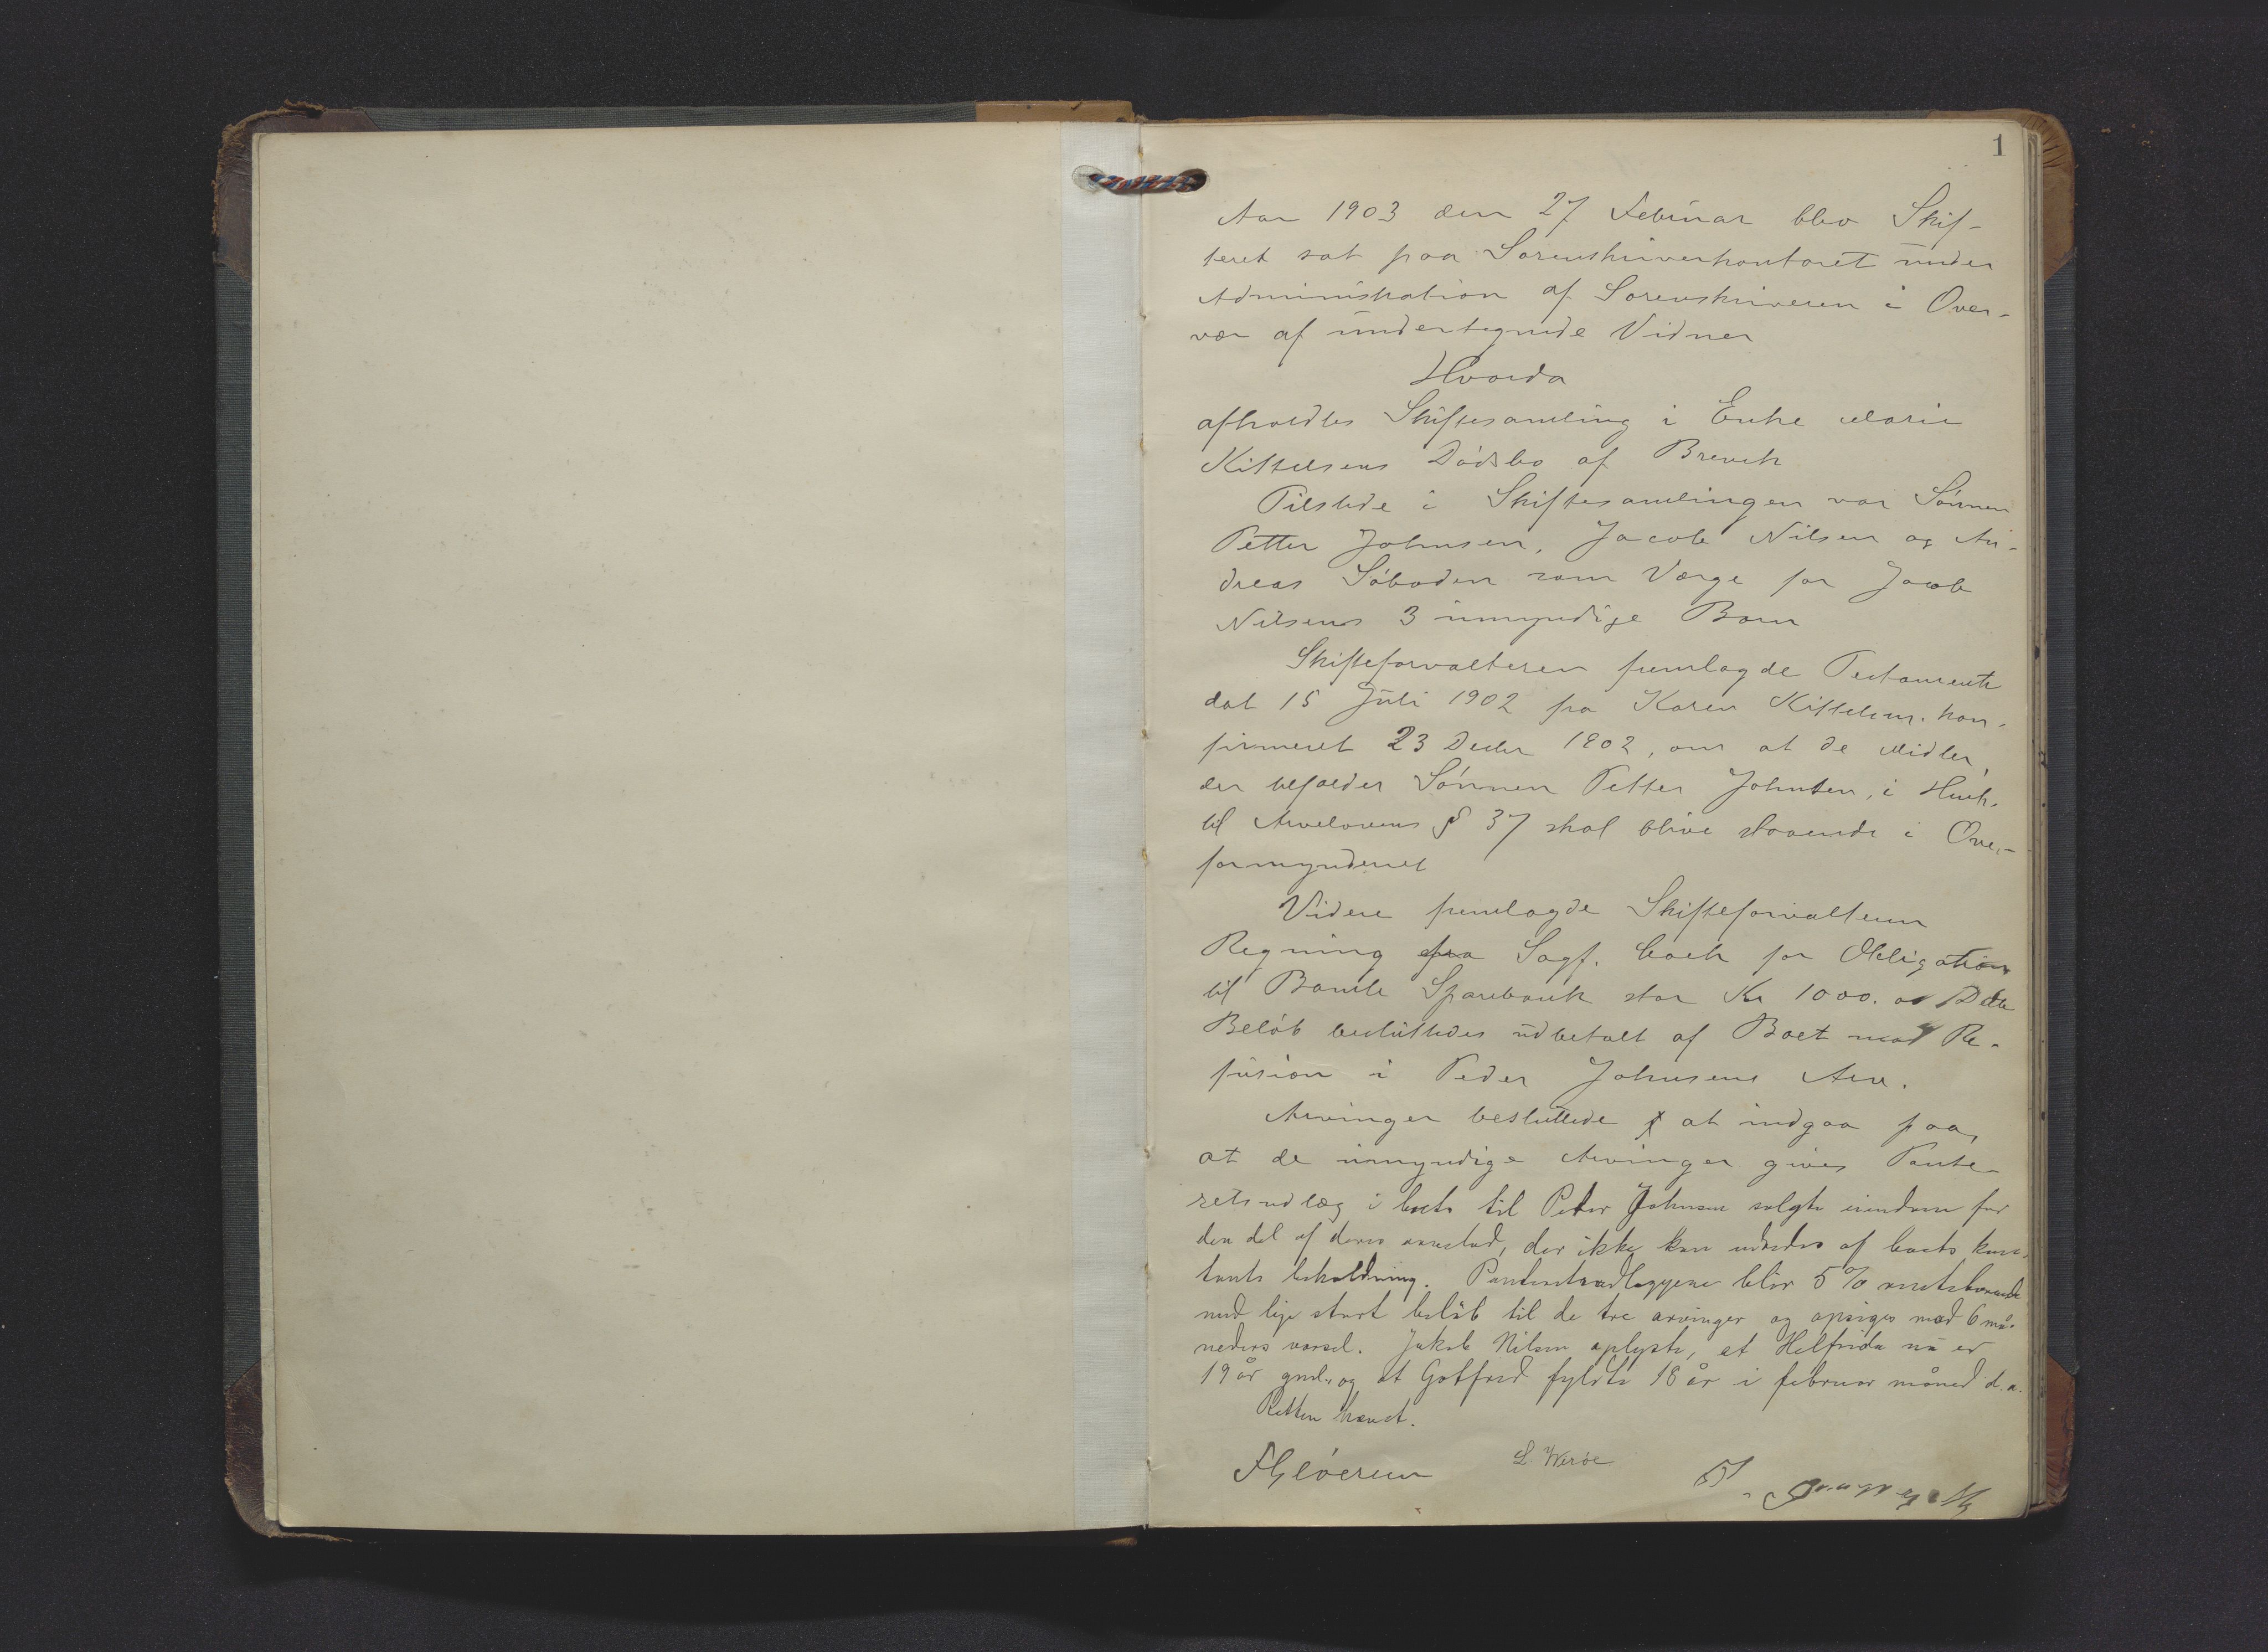 1
Aar 1903 den 27 Februar blev Skif-
teret sat paa Sorenskriverkontoret under
Administration af Sorenskriveren i Over-
vær af undertegnede Vidner
Hvorda
afholdtes Skiftesamling i Enke Marie
Kittelsens Dödsbo af Brevik
Tilstede i Skiftesamlingen var Sönnen
Petter Johnsen, Jacob Nilsen og An-
dreas Söboden som Værge for Jacob
Nilsens 3 umyndige Børn
Skifteforvalteren fremlagde Testamente
dat 15 Juli 1902 fra Karen Kittelsen. kon-
firmeret 23 Decbr 1802, om at de Midler,
der tilfalder Sönnen Petter Johnsen, i Henh.
til Arvelovens § 37 skal blive staaende i Over-
formynderiet
Videre fremlagde Skifteforvalteren
Regning fra Sagf. for Obligation
til Bamle Sparebank stor Kr 1000. Dette
Belöb besluttedes udbetalt af Boet mod Re-
fusion i Peder Johnsens Arv.
Arvinger besluttede at indgaa paa,
at de umyndige Arvinger gives Pante-
retsudlæg i boets til Peter Johnsen solgte eiendom for
den del af deres arvelod, der ikke kan udredes af boets kon-
tante beholdning. Panteretsudlæggene blir 5% rentebærende
med lige stort beløb til de tre arvinger og opsiges med 6 må-
neders varsel. Jakob Nilsen oplyste, at Helfrida nu er
19 år gml. og at Gotfred fyldte 18 år i februar måned d.a.
Retten hævet.
L. Wersøe